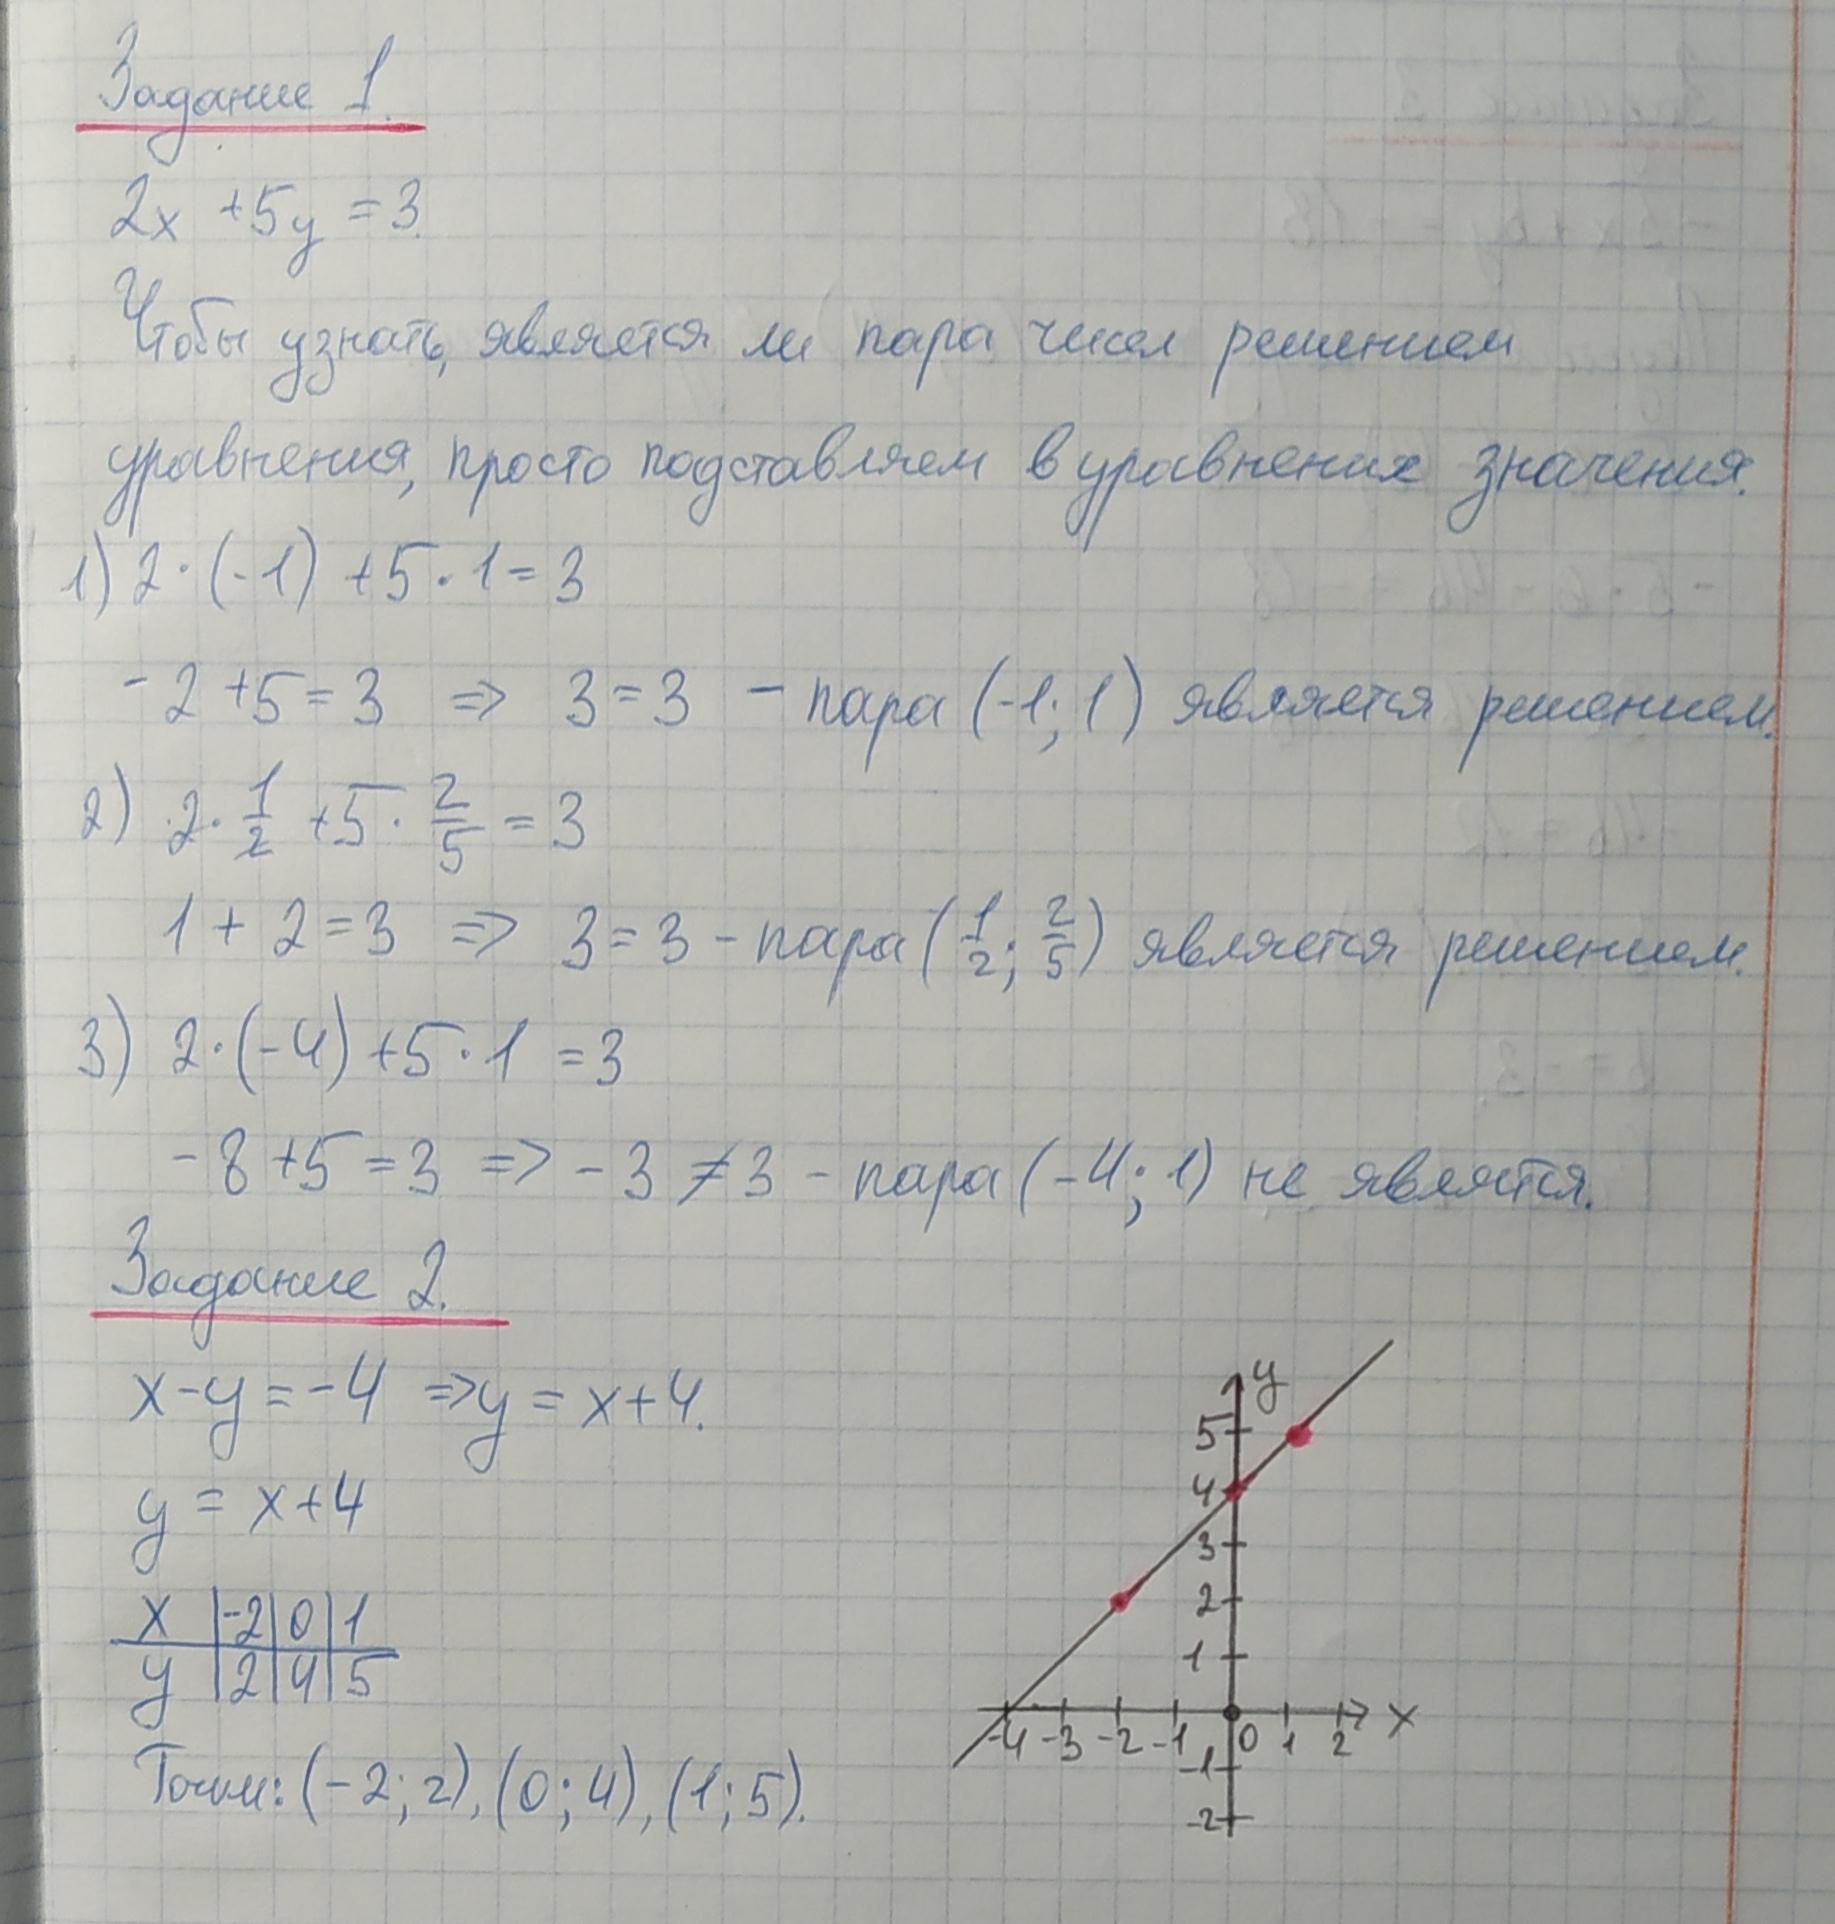 Задание 1.
2x + 5y = 3.
Чтобы узнать, является ли пара чисел решением
уравнения, просто подставляем в уравнених значения.
1) 2 · (-1) + 5 · 1 = 3
-2 + 5 = 3 => 3 = 3 - пара (-1; 1) является решением.
2) 2 · 1/2 + 5 · 2/5 = 3
1 + 2 = 3 => 3 = 3 - пара (1/2; 2/5) является решением.
3) 2 · (-4) + 5 · 1 = 3
-8 + 5 = 3 => -3 ≠ 3 - пара (-4; 1) не является.
Задание 2.
x - y = -4 => y = x + 4.
y = x + 4
x | -2 | 0 | 1
y | 2 | 4 | 5
Точки: (-2; 2), (0; 4), (1; 5).
y
5
4
3
2
1
-4 -3 -2 -1 0 1 2 x
-1
-2